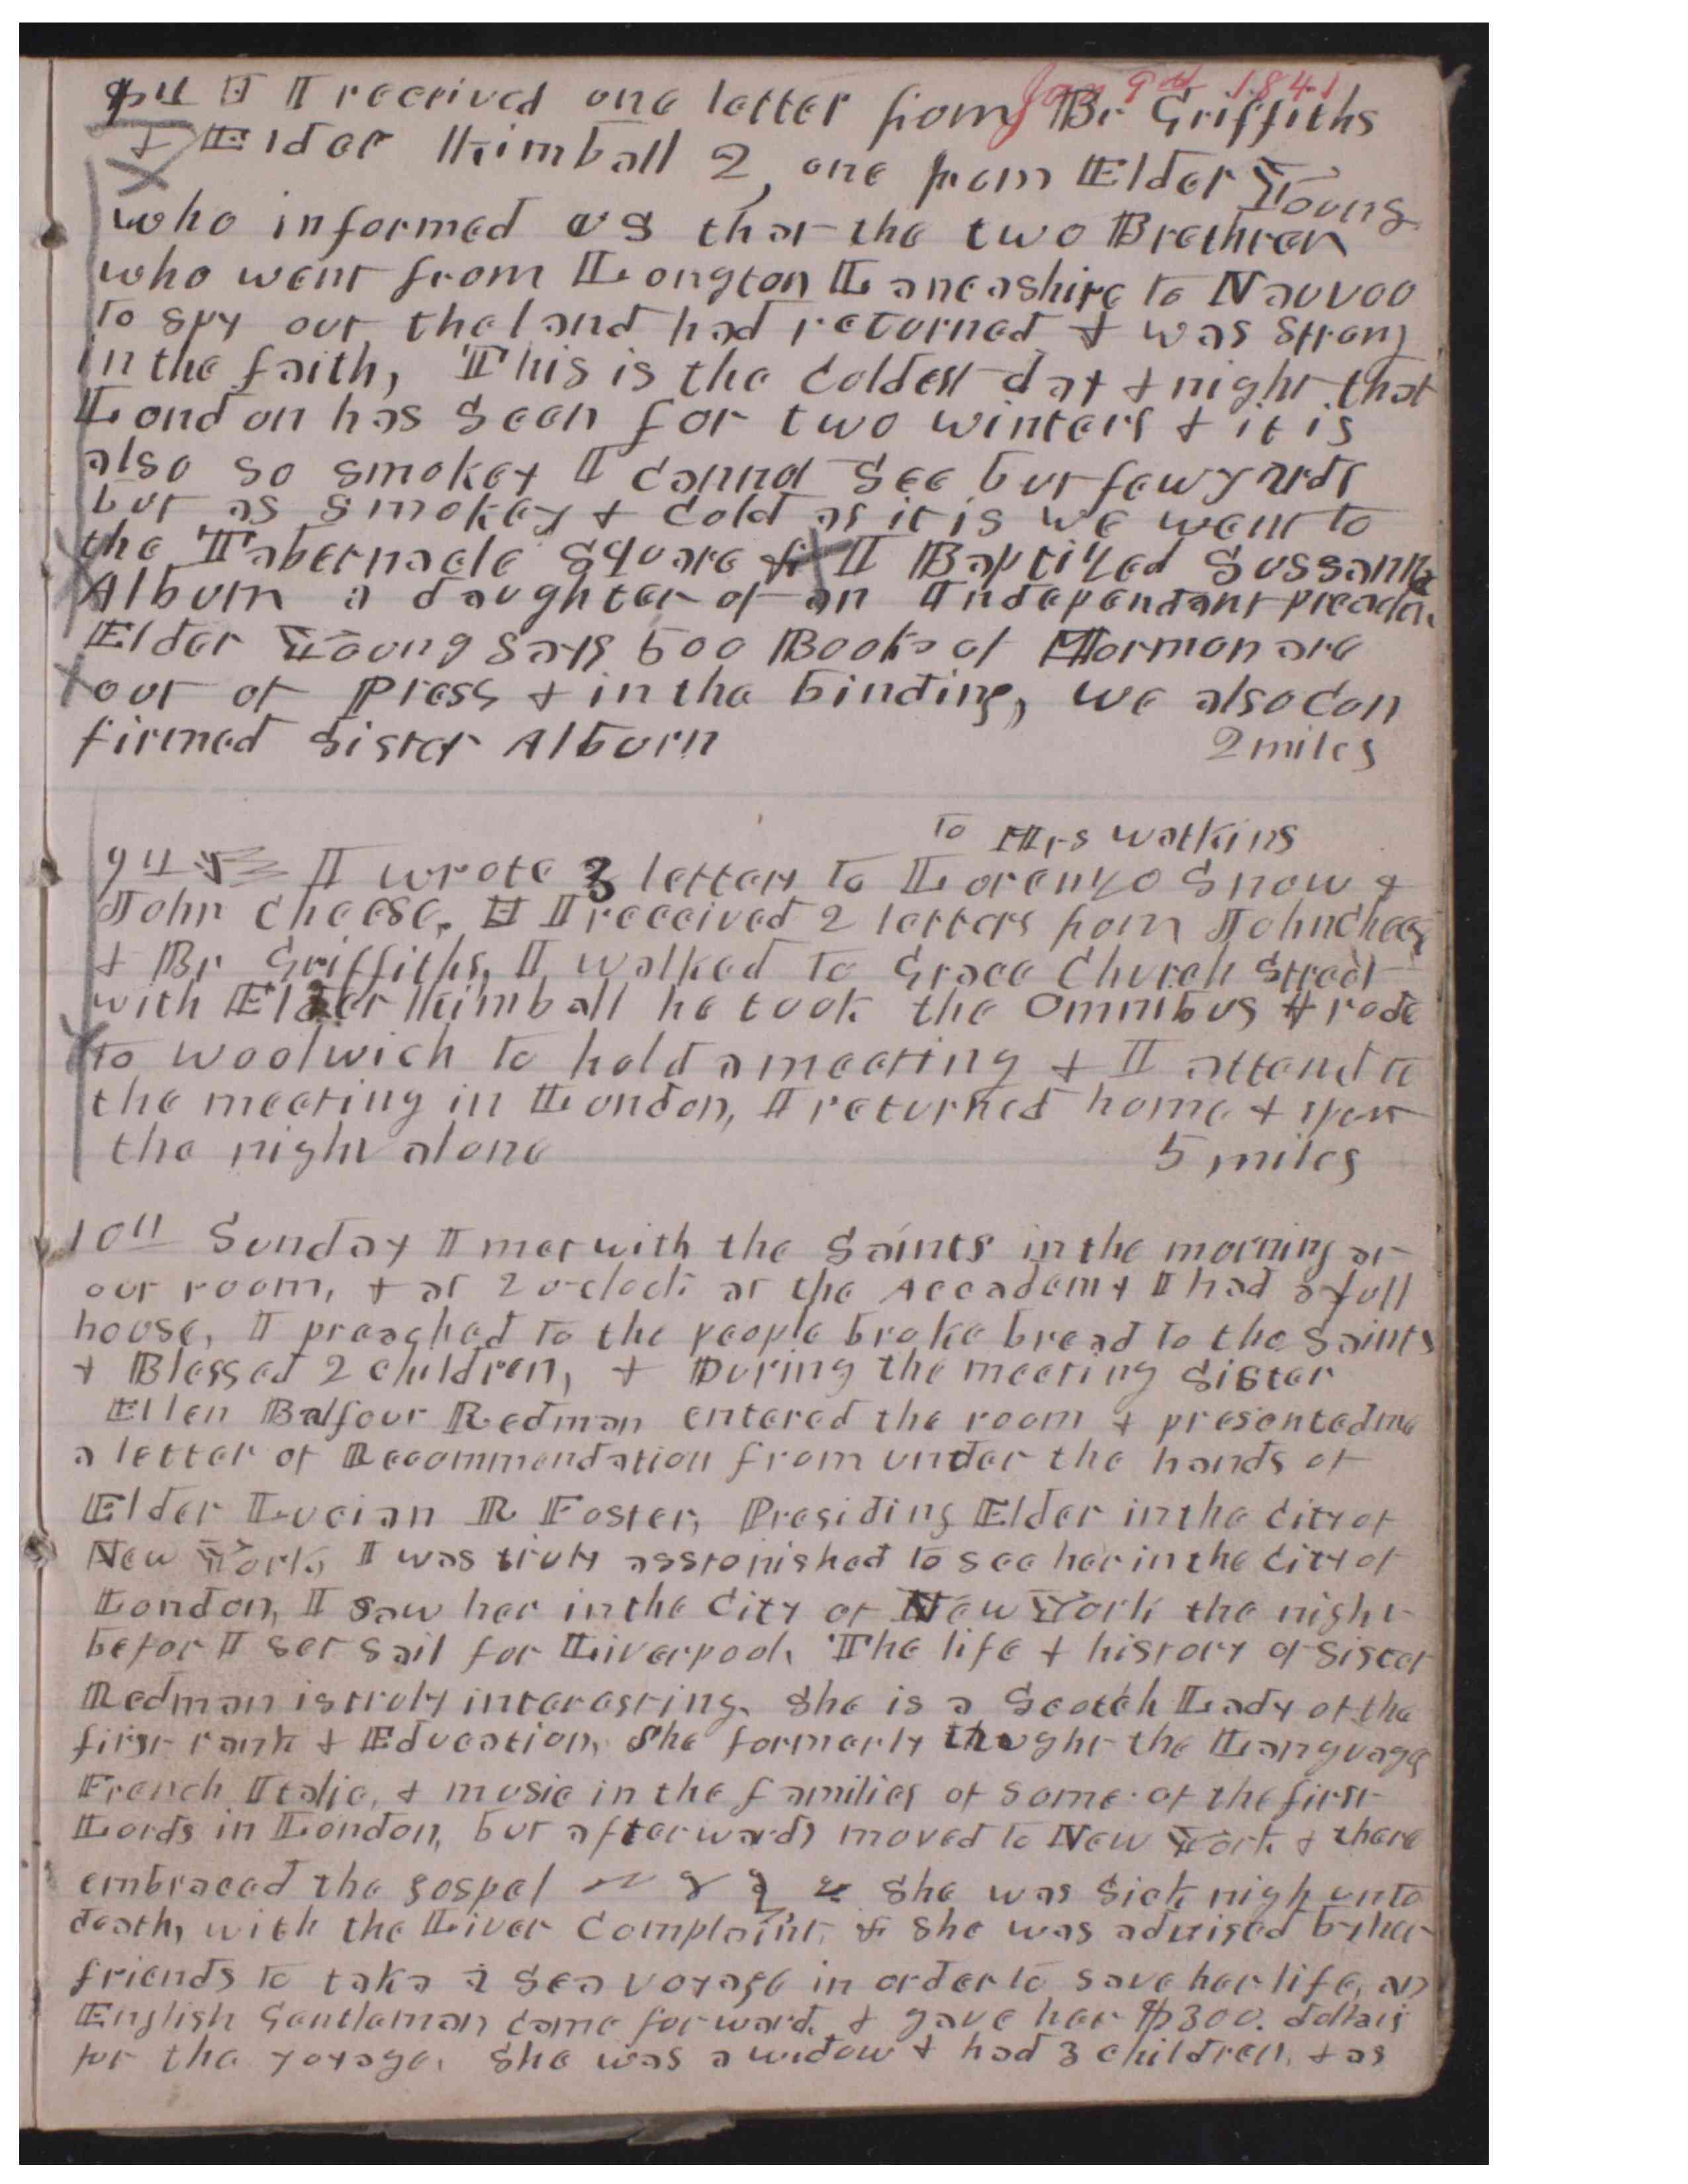 Jan 9th 1841
8th I received one letter from Br Griffiths
& Elder Kimball 2, one from Elder Young
who informed us that the two Brethren
who went from Longton Lancashire to Nauvoo
to spy out the land had returned & was strong
in the faith, This is the Coldest day & night that
London has Seen for two winters & it is
also so smokey I cannot See but few yards
but as smokey & Cold as it is we went to
the Tabernacle Square & I Baptized Sussanna
Alburn a daughter of an Independant preacher.
Elder Young Says 500 Books of Mormon are
out of Press & in the binding, we also Con
firmed Sister Alburn 2 miles
to Mrs Watkins
9th I wrote 3 letters to Lorenzo Snow &
John Cheese. I received 2 letters from John Cheese
& Br Griffiths, I walked to Grace Church Street
with Elder Kimball he took the Omnibus & rode
to Woolwich to hold a meeting & I attend to
the meeting in London, I returned home & spent
the night alone 5 miles
10th Sunday I met with the Saints in the morning at
our room, & at 2 o-clock at the Accademy I had a full
house, I preached to the people broke bread to the Saints
& Blessed 2 children, & During the meeting Sister
Ellen Balfour Redman entered the room & presented me
a letter of Recommendation from under the hands of
Elder Lucian R Foster, Presiding Elder in the City of
New York, I was truly asstonished to see her in the City of
London, I saw her in the City of New York the night
befor I set sail for Liverpool. The life & history of Sister
Redman is truly interesting. She is a Scotch Lady of the
first rank & Education, She formerly thought the Language
French Italic, & music in the families of some of the first
Lords in London, but afterwards moved to New York & there
embraced the gospel She was Sick nigh unto
death, with the Liver Complaint, & she was advised by her
friends to take a Sea voyage in order to save her life, an
English Gentleman came forward, & gave her $300. dollars
for the voyage. She was a widow & had 3 children, & as